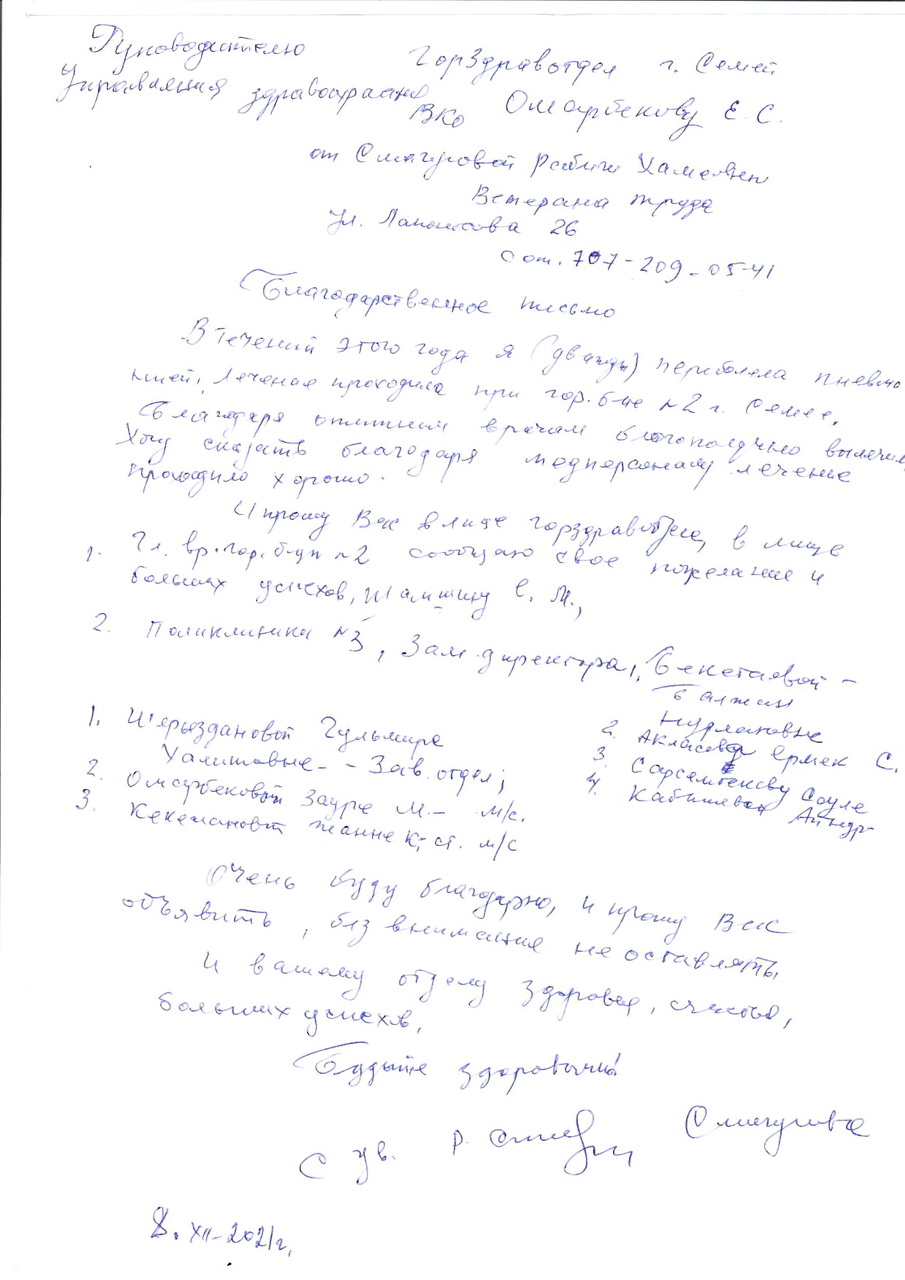 Руководителю Горздравотдел г. Семей
Управления здравоохранения
ВКО Омарбекову Е. С.
от Смагуловой Рабиги
Ветерана труда
ул. 26
сот. 707-209-05-41
Благодарственное письмо
В течений этого года я (дважды) переболела пневмо
нией, лечение проходила при гор. б-це №2 г. Семее,
Благодаря отличным врачам благополучно вылечил
Хочу сказать благодаря медперсоналу лечение
проходило хорошо.
И прошу Вас в лице горздравотдела, в лице
1. Гл. вр. гор. б-цы №2 сообщаю свое пожелание и
больших успехов, Шамшину Е. М.,
2. Поликлиники №3, Зам. директора, Бекетаевой -
Балжан
Нурлановне
1. Шерыздановой Гульмире
Халитовне - - Зав. отдел;
2. Омарбековой Зауре М. - м/с.
3. Кекемановой Жанне К; ст. м/с
2. Ермек С.
3. Сарсембекову Сауле
4. Кабышевой Айнур
Очень буду благодарно, и прошу Вас
объявить, без внимания не оставлять.
И вашему отделу здоровья, счастья,
больших успехов,
Будьте здоровыми!
С ув. Р. Смагулова
8. XII-2021г.